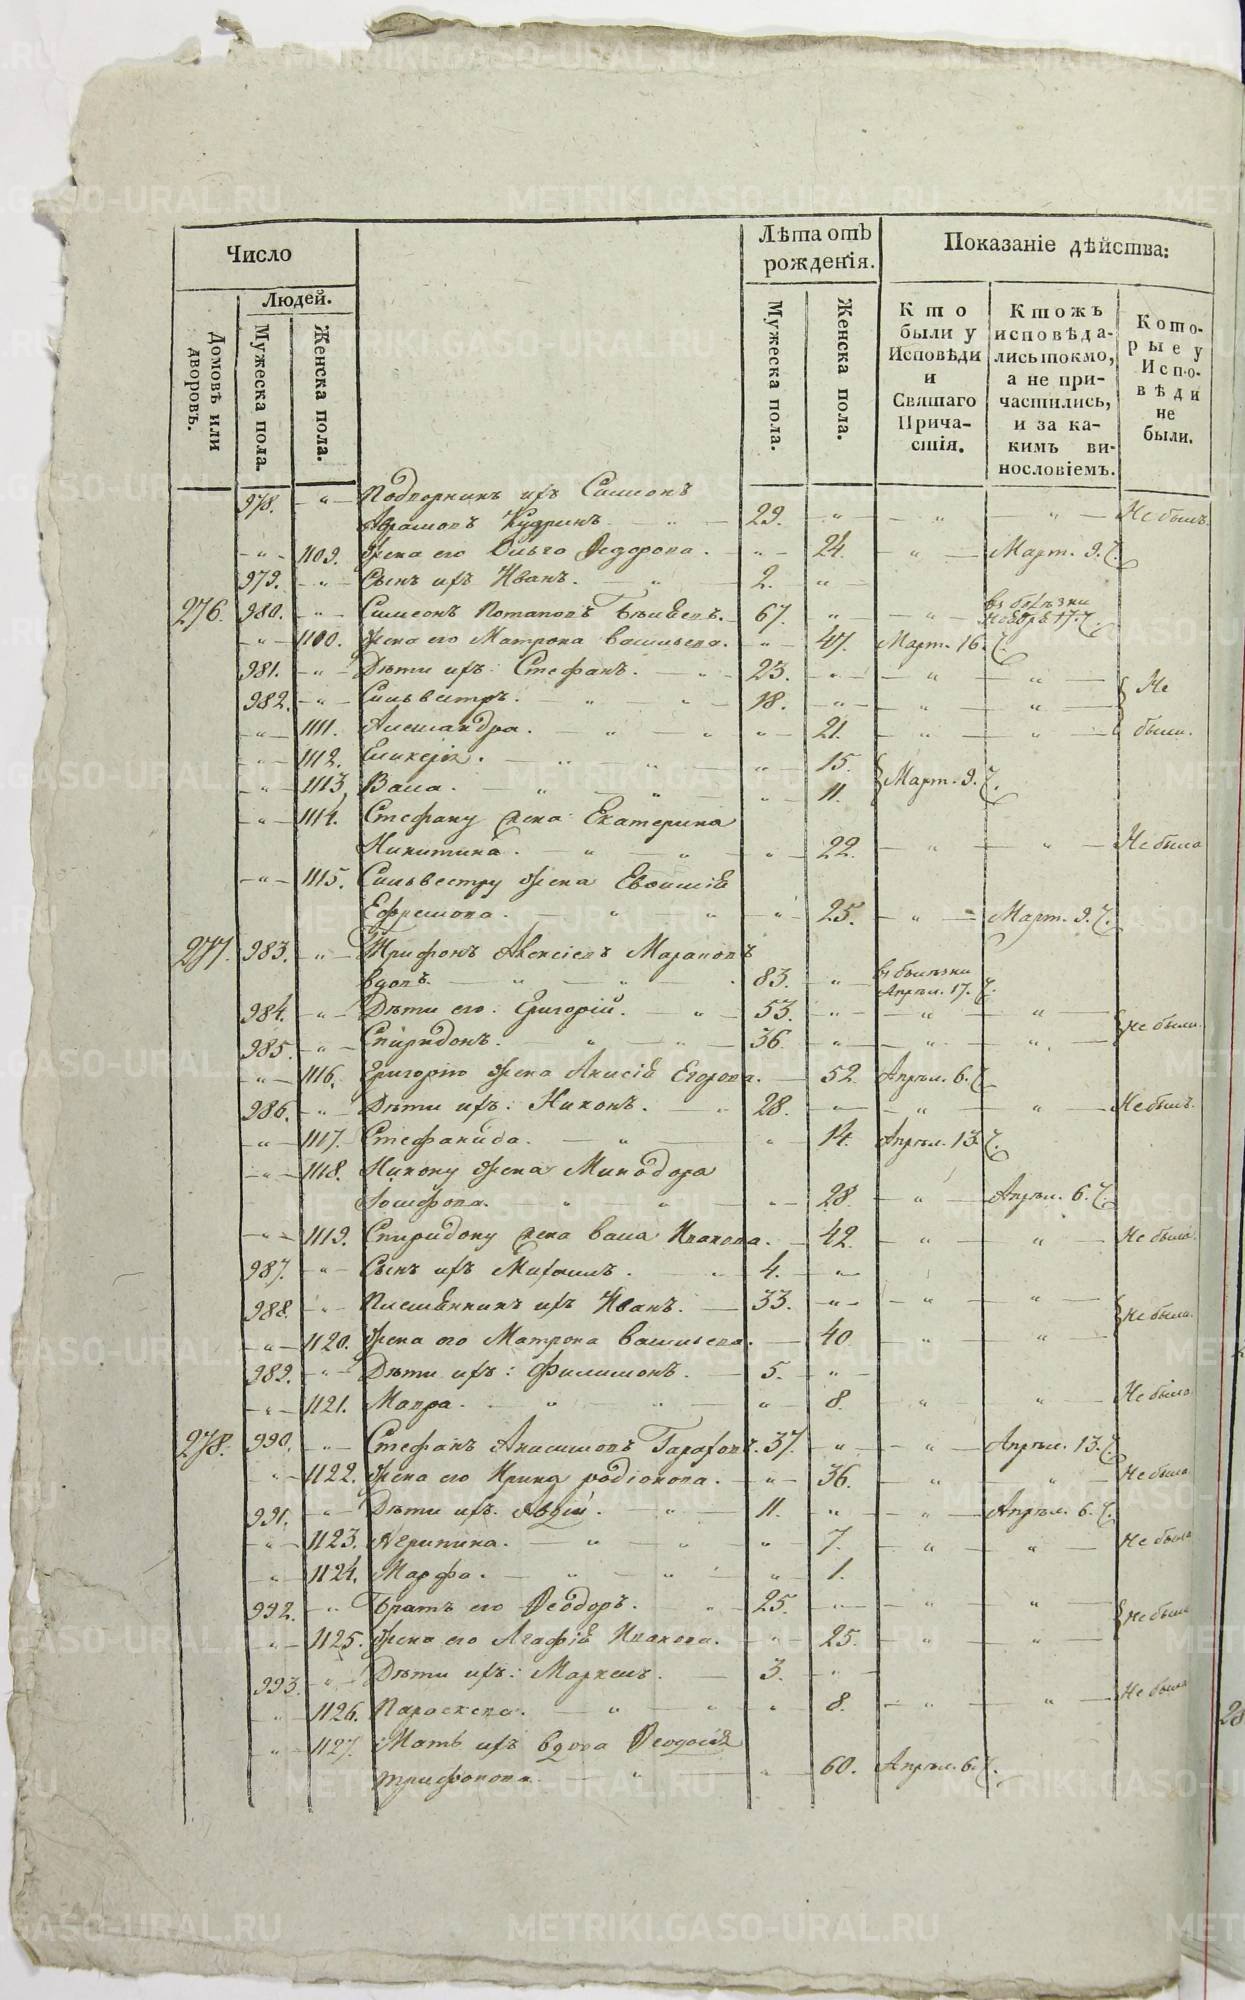 Число
Лѣта отъ рожденія.
Показаніе дѣйства:
Людей.
Домовъ или дворовъ.
Мужеска пола.
Женска пола.
Мужеска пола.
Женска пола.
Кто были у Исповѣди и Святаго Причастія.
Ктожъ исповѣдались токмо, а не причастились, и за какимъ винословіемъ.
Которые у Исповѣди не были.
978. Подпорникъ ихъ Самсонъ
Абрамовъ Кудринъ 29. Не былъ.
1109. Жена его Ольга Ѳедорова. 24. Март. 9.
979. Сынъ ихъ Иванъ. 2.
276. 980. Симеонъ Потаповъ 67.
1100. Жена его Матрона Васильева. 47. Март. 16.
981. Дѣти ихъ: Стефанъ. 23. Не
982. Сильвестръ. 18.
1111. Александра. 21. были.
1112. Гликерія. 15. Март. 9.
1113. Васса. 11.
1114. Стефану жена Екатерина
Никитина. 22. Не была
1115. Сильвестру жена Евдокія
Ефремова. 25. Март. 9.
277. 983. Трифонъ Алексіевъ
вдовъ. 83. Апрѣл. 17.
984. Дѣти его: Григорій. 53. не были.
985. Спиридонъ. 36.
1116. Григорію жена Анисія Егорова. 52. Апрѣл. 6.
986. Дѣти ихъ: Никонъ. 28. Не былъ.
1117. Стефанида. 14. Апрѣл. 13.
1118. Никону жена Минодора
Іосифова. 28. Апрѣл. 6.
1119. Спиридону жена Васса Иванова. 42. Не была.
987. Сынъ ихъ Михаилъ. 4.
988. Племянникъ ихъ Иванъ. 33. Не были.
1120. Жена его Матрона Васильева. 40.
989. Дѣти ихъ: Филимонъ. 5.
1121. Мавра. 8. Не была
278. 990. Стефанъ Анисимовъ 37. Апрѣл. 13.
1122. Жена его Ирина Родіонова. 36. Не была
991. Дѣти ихъ. Авдій. 11. Апрѣл. 6.
1123. Агрипина. 7. Не была
1124. Марфа. 1.
992. Братъ его Ѳеодоръ. 25. Не были
1125. Жена его Агафія Иванова. 25.
993. Дѣти ихъ: Маркелъ. 3.
1126. Параскева. 8. Не была
1127. Мать ихъ вдова Ѳеодосія
Трифонова. 60. Апрѣл. 6.
28
METRIKI.GASO-URAL.RU